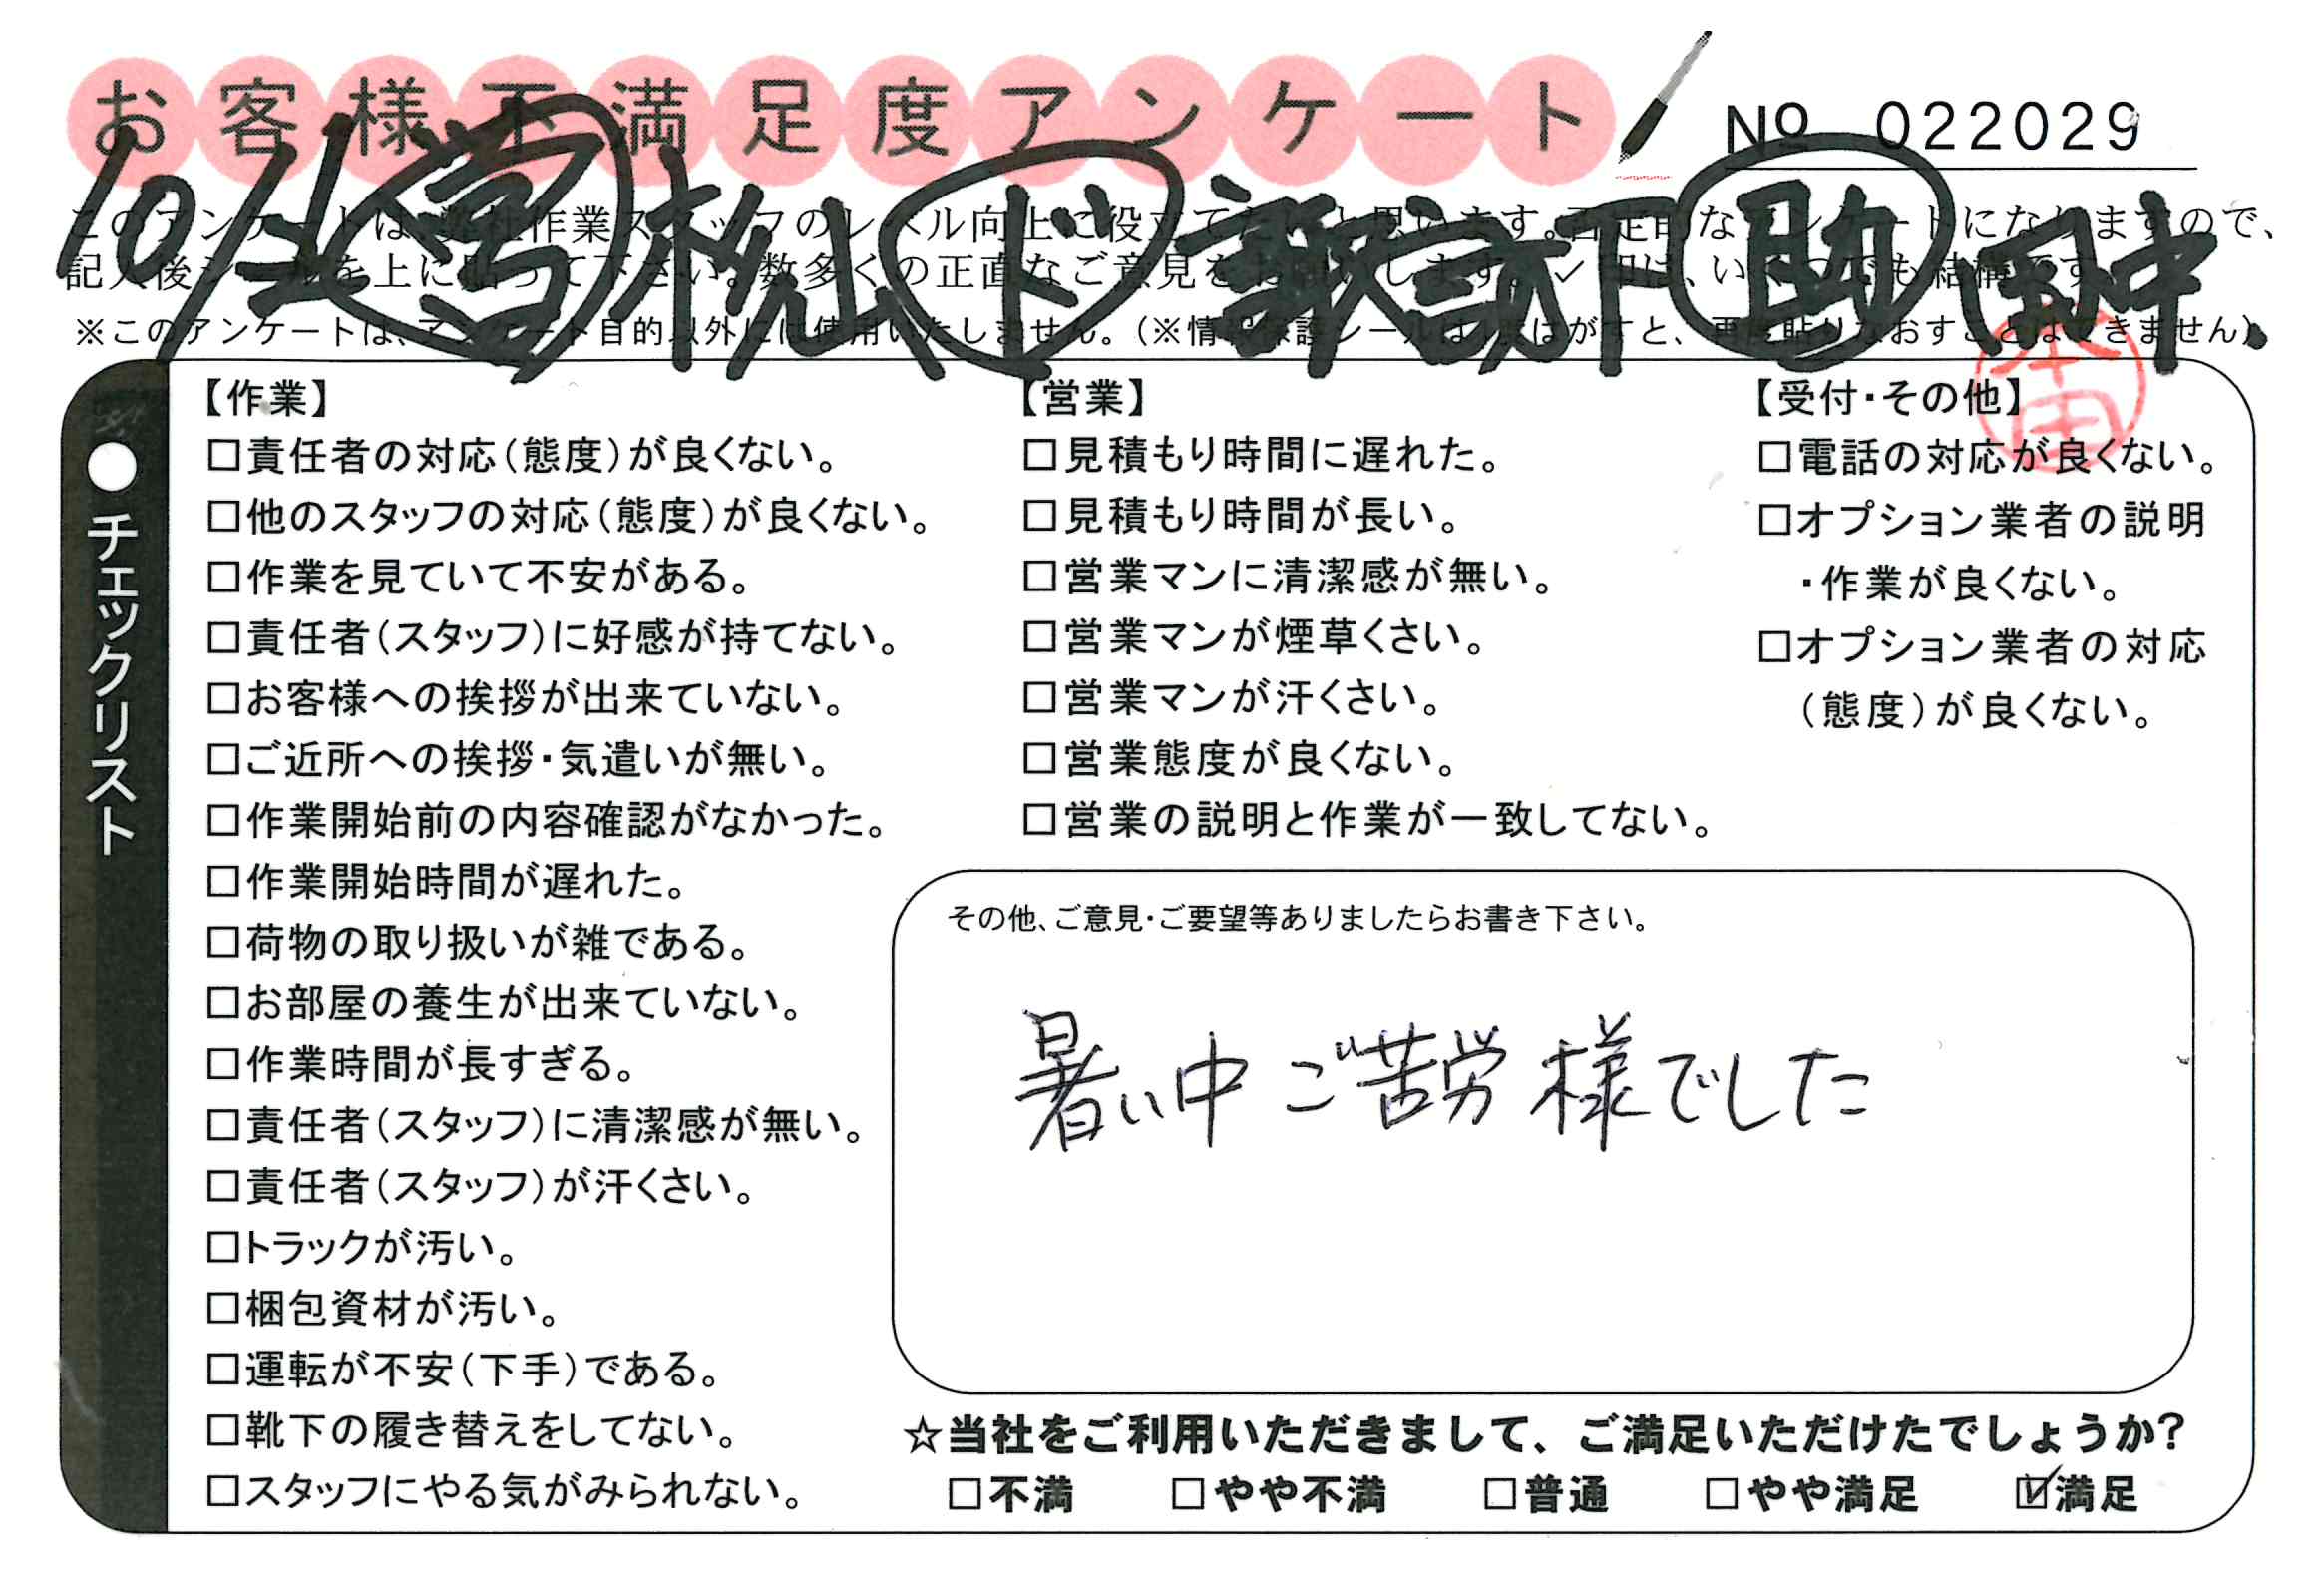 お客様不満足度アンケート
№ 022029
10/2 営 松山 ド 諏訪下 助 田中
このアンケートは、弊社作業スタッフのレベル向上に役立てたいと思います。否定的なアンケートになりますので、
記入後シールを上に貼って下さい。数多くの正直なご意見をお願いします。✓印は、いくつでも結構です。
※このアンケートは、アンケート目的以外には使用いたしません。(※情報保護シールは一度はがすと、再度貼りなおすことはできません)
本田
●チェックリスト
【作業】
□責任者の対応(態度)が良くない。
□他のスタッフの対応(態度)が良くない。
□作業を見ていて不安がある。
□責任者(スタッフ)に好感が持てない。
□お客様への挨拶が出来ていない。
□ご近所への挨拶・気遣いが無い。
□作業開始前の内容確認がなかった。
□作業開始時間が遅れた。
□荷物の取り扱いが雑である。
□お部屋の養生が出来ていない。
□作業時間が長すぎる。
□責任者(スタッフ)に清潔感が無い。
□責任者(スタッフ)が汗くさい。
□トラックが汚い。
□梱包資材が汚い。
□運転が不安(下手)である。
□靴下の履き替えをしてない。
□スタッフにやる気がみられない。
【営業】
□見積もり時間に遅れた。
□見積もり時間が長い。
□営業マンに清潔感が無い。
□営業マンが煙草くさい。
□営業マンが汗くさい。
□営業態度が良くない。
□営業の説明と作業が一致してない。
【受付・その他】
□電話の対応が良くない。
□オプション業者の説明
・作業が良くない。
□オプション業者の対応
(態度)が良くない。
その他、ご意見・ご要望等ありましたらお書き下さい。
暑い中ご苦労様でした
☆当社をご利用いただきまして、ご満足いただけたでしょうか?
□不満 □やや不満 □普通 □やや満足 ☑満足